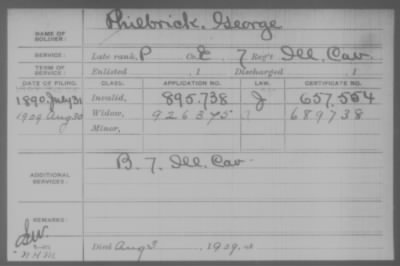 NAME OF SOLDIER: Philbrick, George
SERVICE: Late rank, P Co. E, 7 Reg't Ill. Cav.
TERM OF SERVICE: Enlisted , 1 Discharged , 1
DATE OF FILING. CLASS. APPLICATION NO. LAW. CERTIFICATE NO.
1890 July 31 Invalid, 895.738 J 657.554
1909 Aug 30 Widow, 926375 689738
Minor,
ADDITIONAL SERVICES: B. 7. Ill. Cav.
REMARKS:
Died Aug 3, 1909.